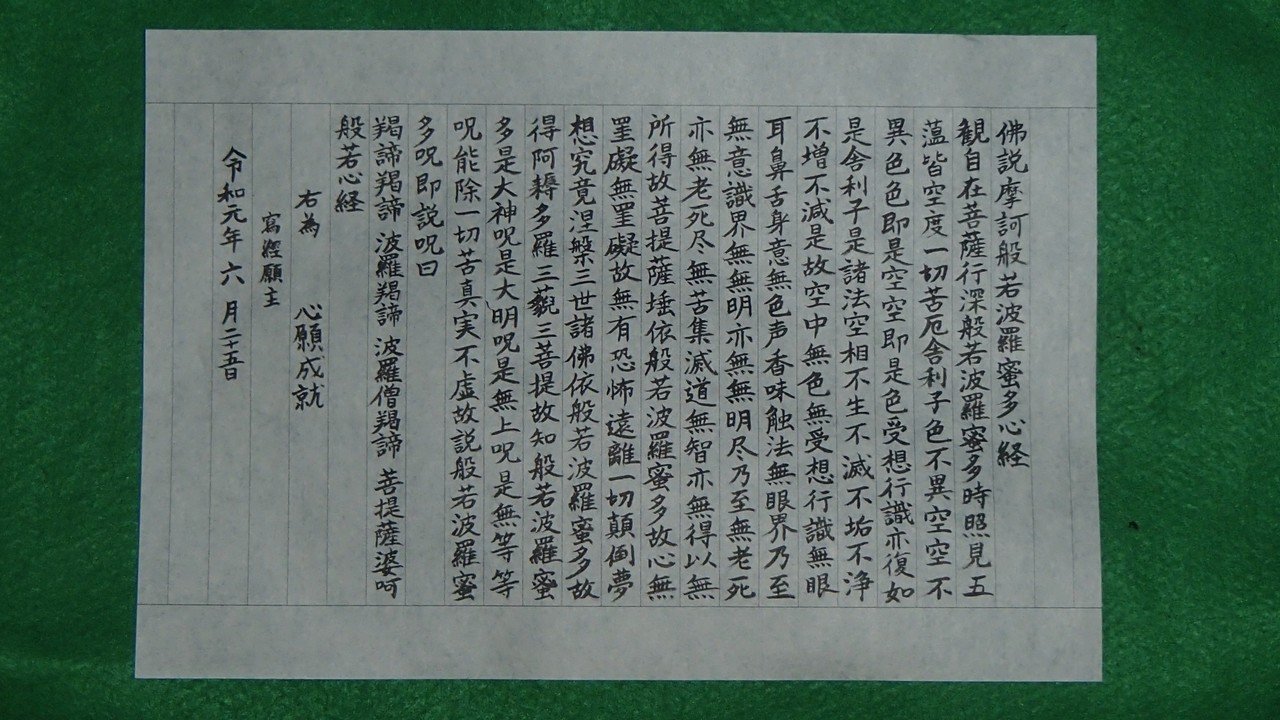 佛説摩訶般若波羅蜜多心経
観自在菩薩行深般若波羅蜜多時照見五
薀皆空度一切苦厄舎利子色不異空空不
異色色即是空空即是色受想行識亦復如
是舎利子是諸法空相不生不滅不垢不浄
不増不減是故空中無色無受想行識無眼
耳鼻舌身意無色声香味触法無眼界乃至
無意識界無無明亦無無明尽乃至無老死
亦無老死尽無苦集滅道無智亦無得以無
所得故菩提薩埵依般若波羅蜜多故心無
罣礙無罣礙故無有恐怖遠離一切顛倒夢
想究竟涅槃三世諸佛依般若波羅蜜多故
得阿耨多羅三藐三菩提故知般若波羅蜜
多是大神呪是大明呪是無上呪是無等等
呪能除一切苦真実不虚故説般若波羅蜜
多呪即説呪曰
羯諦羯諦 波羅羯諦 波羅僧羯諦 菩提薩婆呵
般若心経
右為 心願成就
寫經願主
令和元年六月二十五日